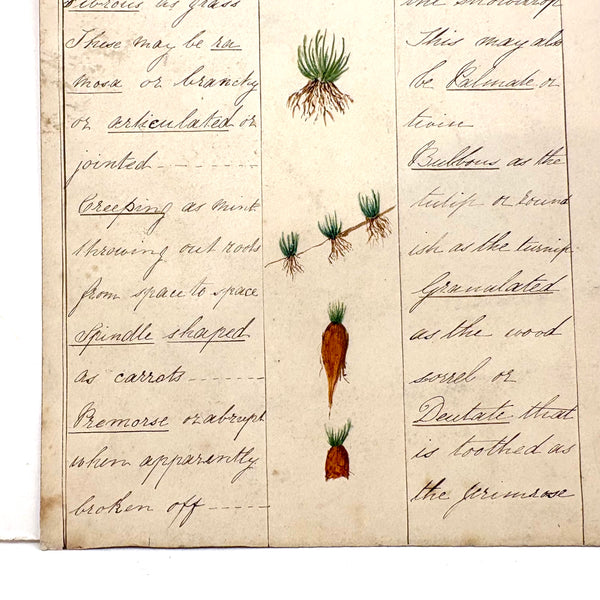 Fibrous as grass
These may be ra
mosa or branchy
or articulated or
jointed
Creeping as mint
throwing out roots
from space to space
Spindle shaped
as carrots
Premorse or abrupt
when apparently
broken off
the snowdrop
This may also
be Palmate or
twin
Bulbous as the
tulip or round
ish as the turnip
Granulated
as the wood
sorrel or
Dentate that
is toothed as
the primrose